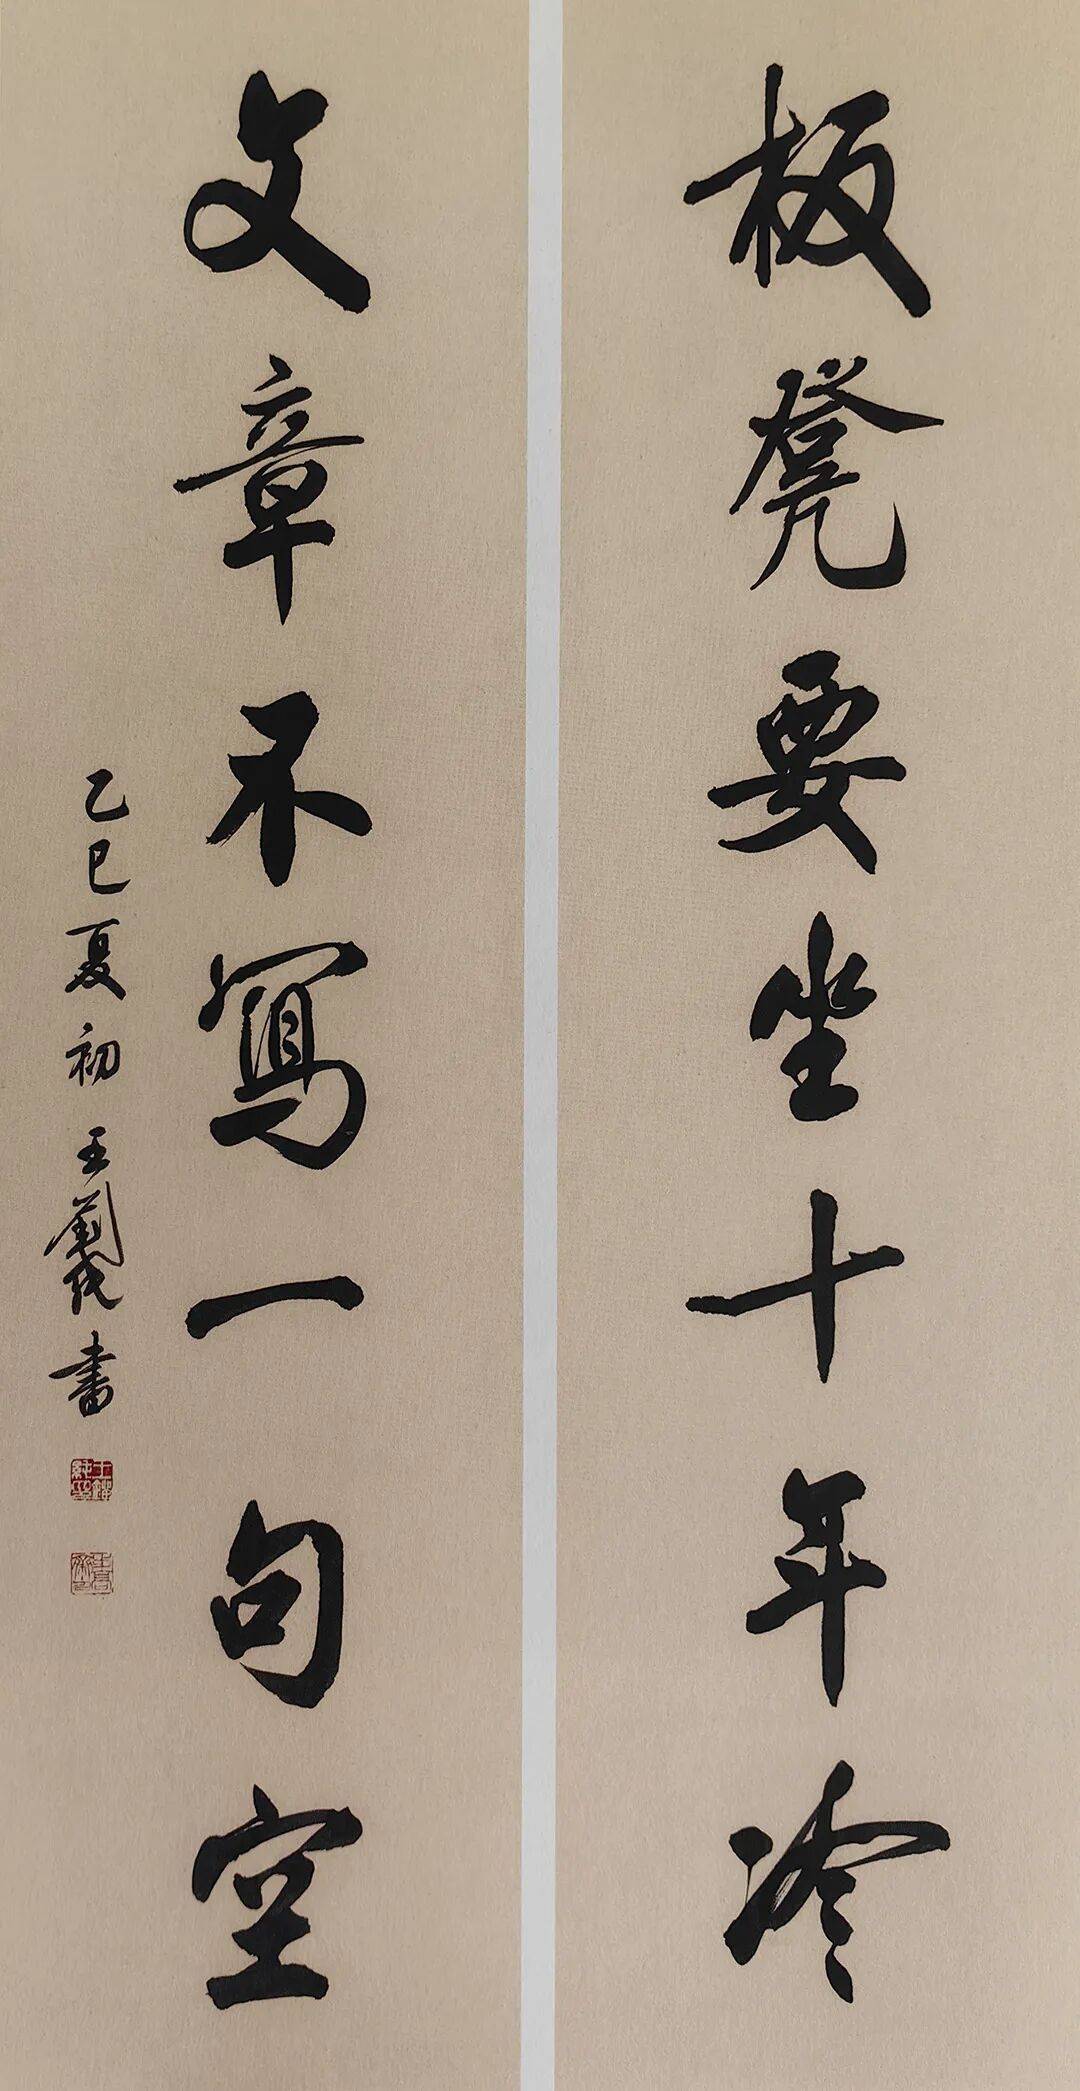 板凳要坐十年冷
文章不寫一句空
乙巳夏初王劉純書